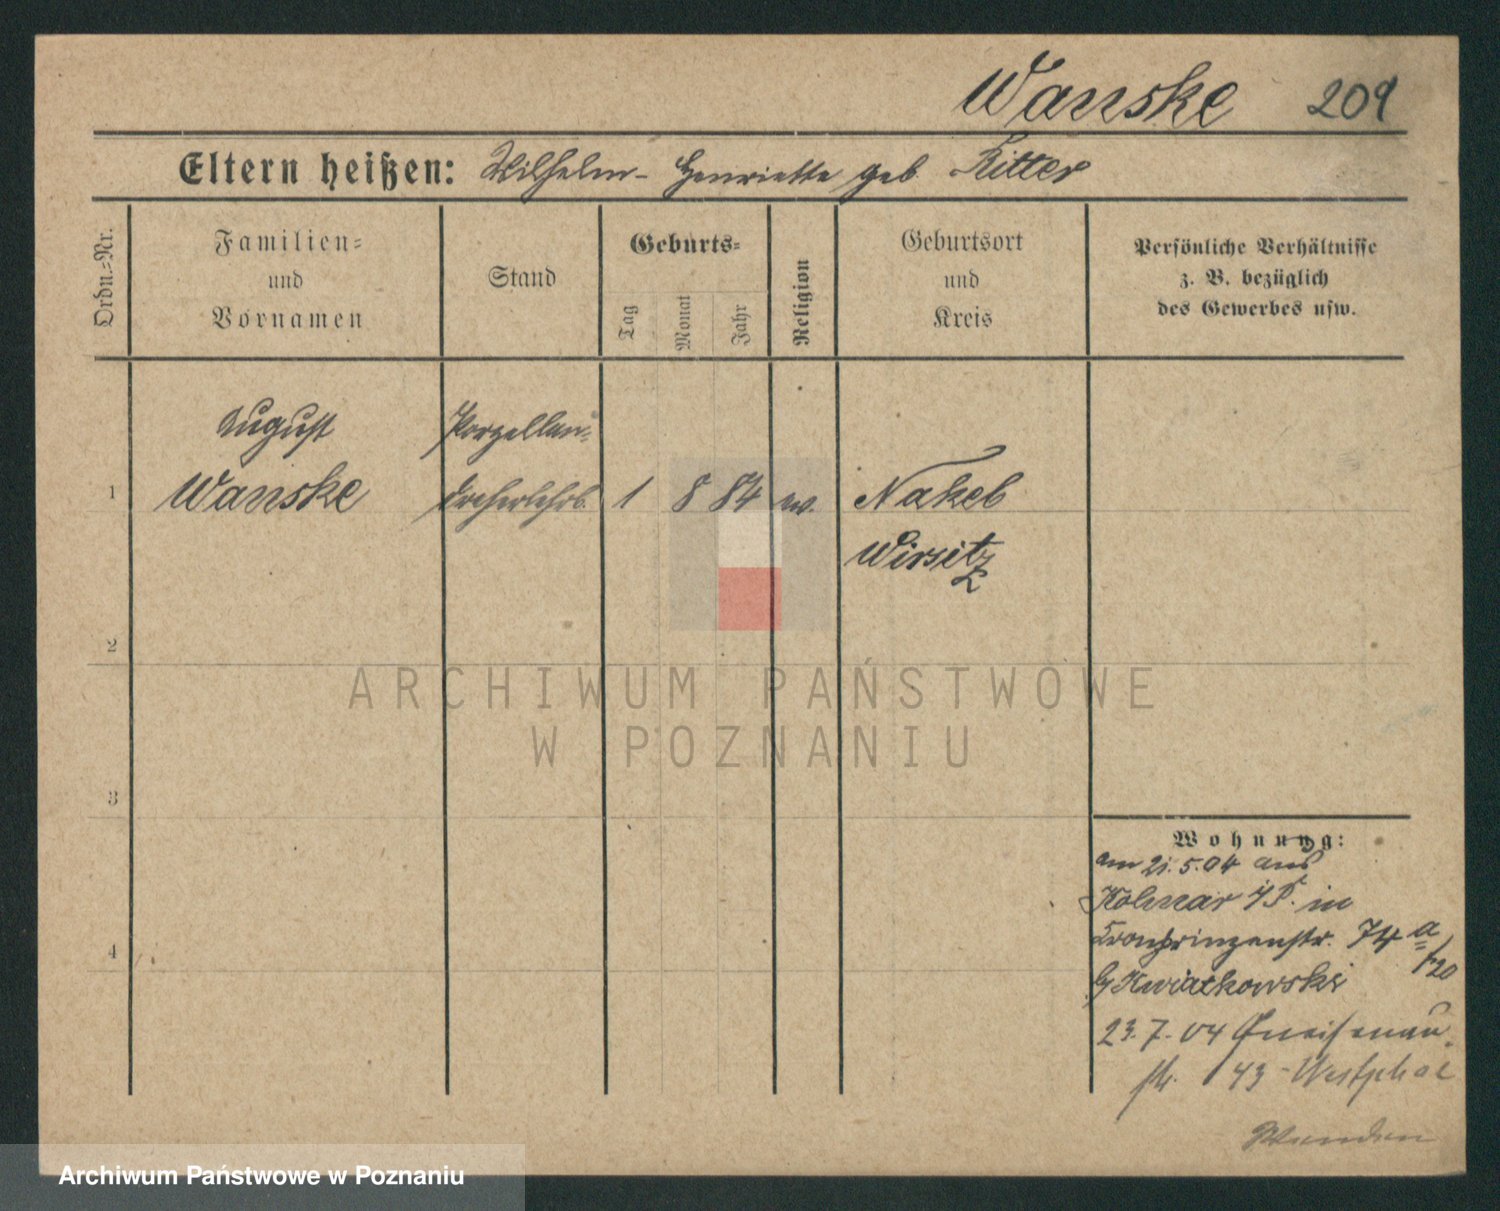 Wanske 209
Eltern heißen: Wilhelm - Henriette geb. Ritter
Ordn.=Nr.
Familien=
und
Vornamen
Stand
Geburts=
Tag
Monat
Jahr
Religion
Geburtsort
und
Kreis
Persönliche Verhältnisse
z. B. bezüglich
des Gewerbes usw.
August Porzellan=
1 Wanske dreherlehrl. 1 8 84 ew. Nakel
Wirsitz
2
3
4
Wohnung:
am 21.5.04 aus
Kolmar i/P. in
Kronprinzenstr. 74 a
b/ Kwiatkowski
23.7.04 Gneisenau
str. 43 - Westphal
ARCHIWUM PAŃSTWOWE
W POZNANIU
Archiwum Państwowe w Poznaniu